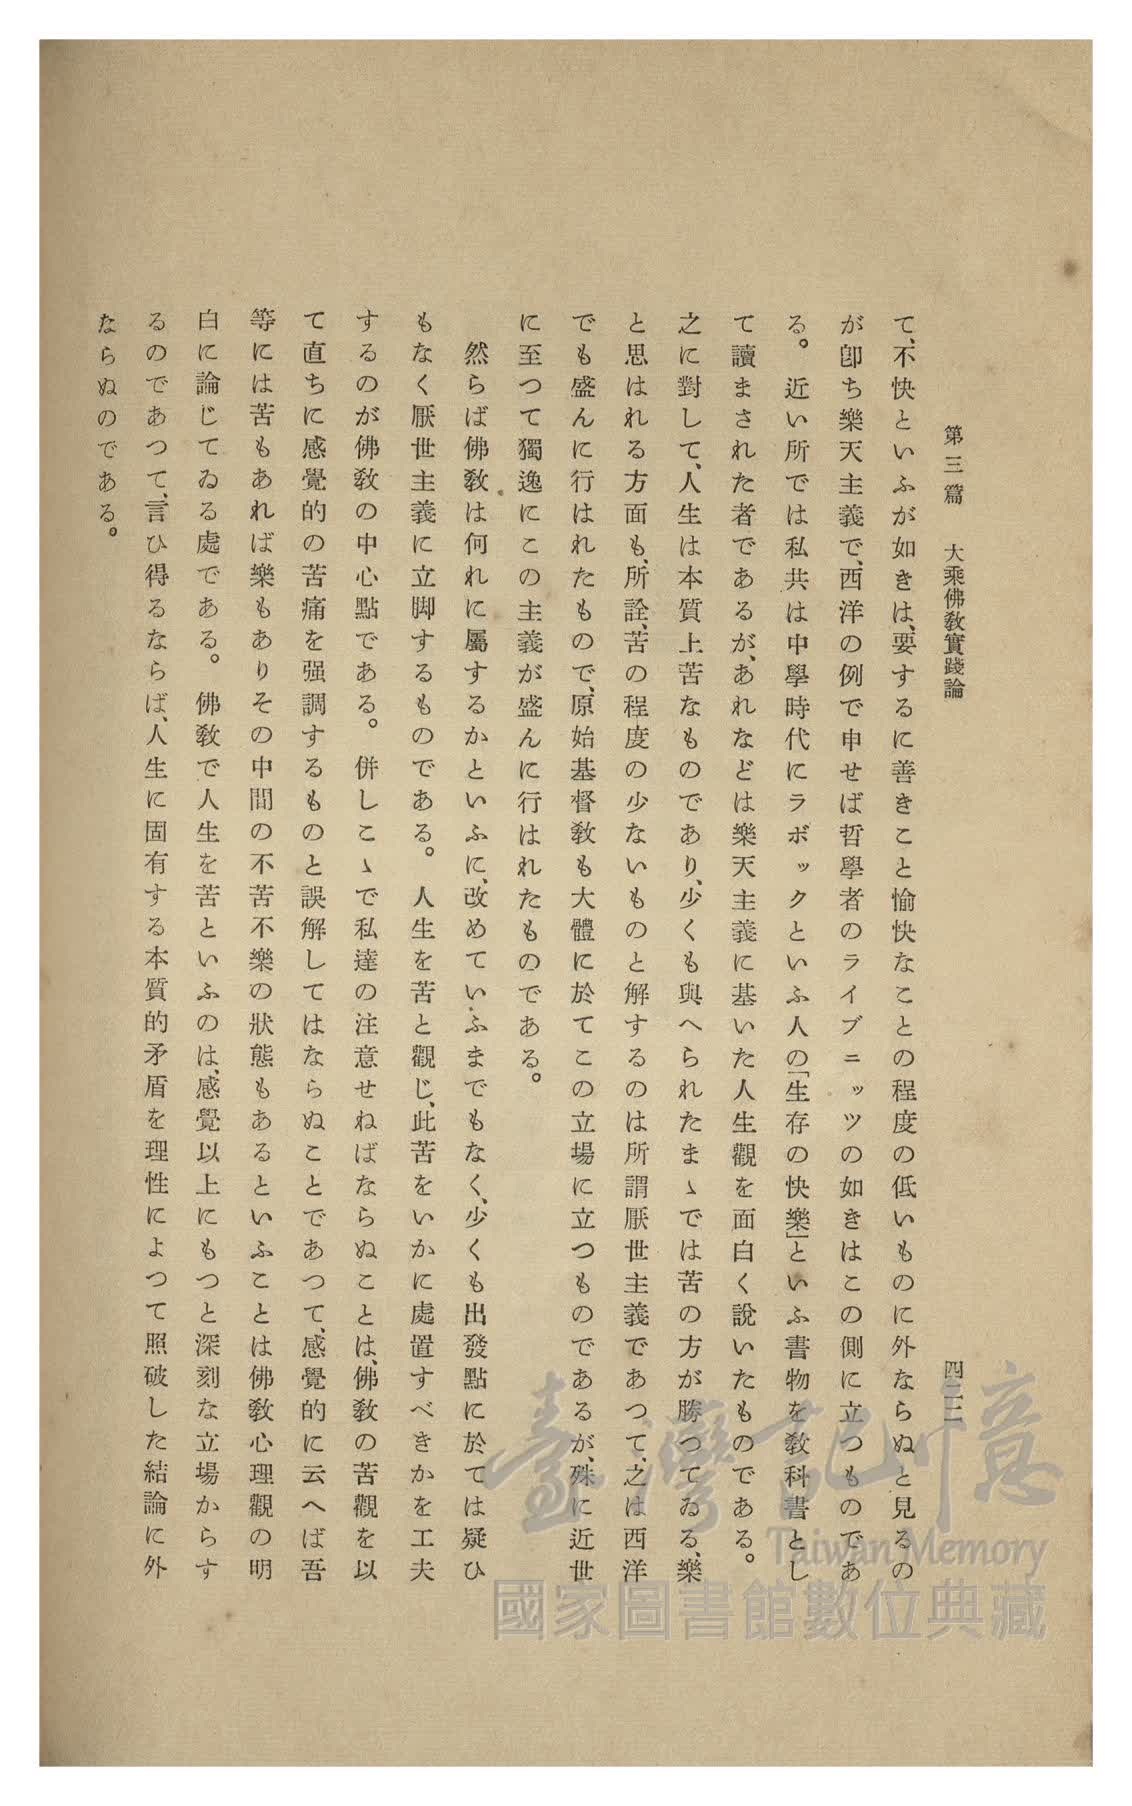 第三篇　大乘佛敎實踐論
四二二
て、不快といふが如きは、要するに善きこと愉快なことの程度の低いものに外ならぬと見るの
が卽ち樂天主義で、西洋の例で申せば哲學者のライブニッツの如きはこの側に立つものであ
る。近い所では私共は中學時代にラボックといふ人の「生存の快樂」といふ書物を敎科書とし
て讀まされた者であるが、あれなどは樂天主義に基いた人生觀を面白く說いたものである。
之に對して、人生は本質上苦なものであり、少くも與へられたまゝでは苦の方が勝つてゐる、樂
と思はれる方面も、所詮、苦の程度の少ないものと解するのは所謂厭世主義であつて、之は西洋
でも盛んに行はれたもので、原始基督敎も大體に於てこの立場に立つものであるが、殊に近世
に至つて獨逸にこの主義が盛んに行はれたものである。
然らば佛敎は何れに屬するかといふに、改めていふまでもなく、少くも出發點に於ては疑ひ
もなく厭世主義に立脚するものである。人生を苦と觀じ、此苦をいかに處置すべきかを工夫
するのが佛敎の中心點である。併しこゝで私達の注意せねばならぬことは、佛敎の苦觀を以
て直ちに感覺的の苦痛を强調するものと誤解してはならぬことであつて、感覺的に云へば吾
等には苦もあれば樂もありその中間の不苦不樂の狀態もあるといふことは佛敎心理觀の明
白に論じてゐる處である。佛敎で人生を苦といふのは、感覺以上にもつと深刻な立場からす
るのであつて、言ひ得るならば、人生に固有する本質的矛盾を理性によつて照破した結論に外
ならぬのである。
臺灣記憶
Taiwan Memory
國家圖書館數位典藏